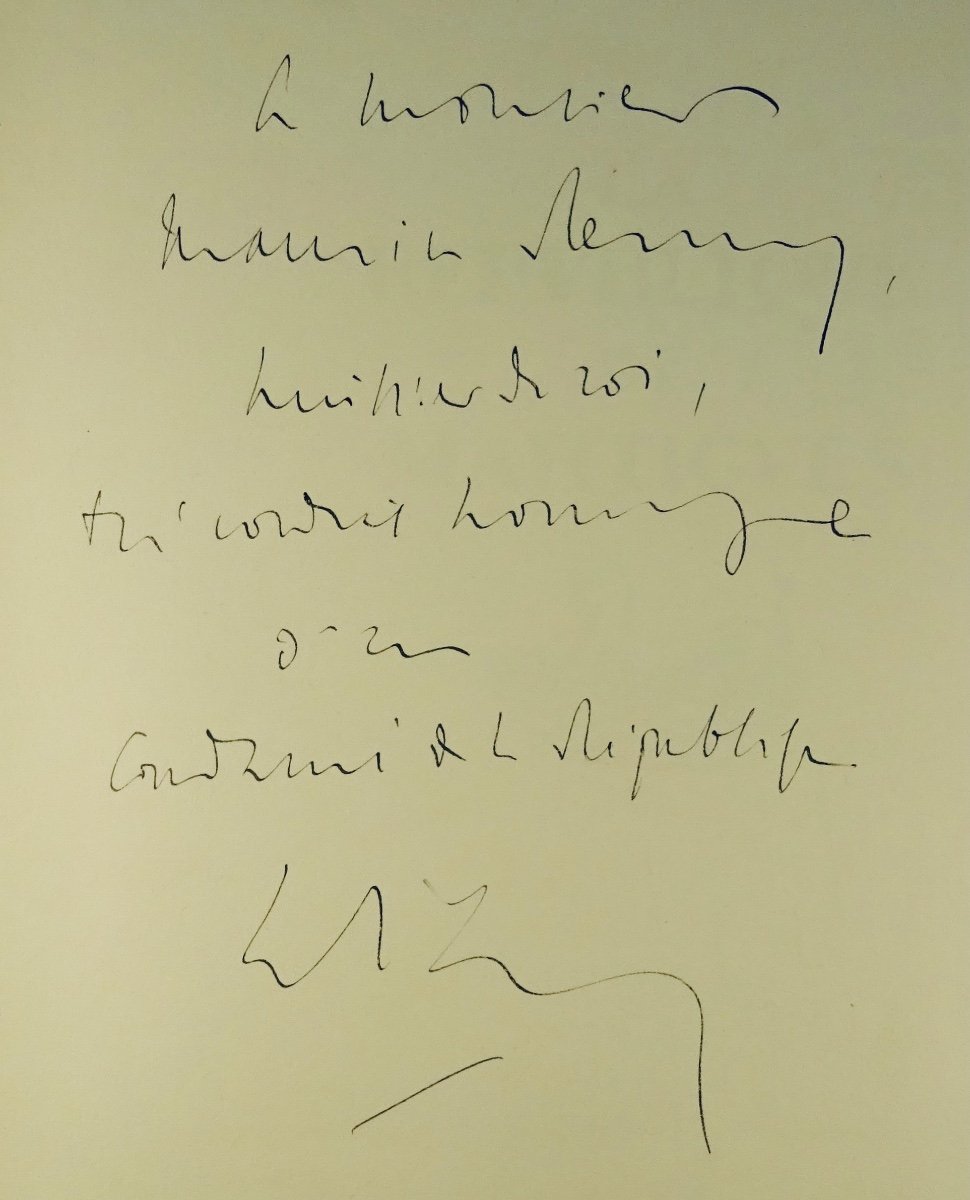 à Monsieur
Maurice Remy,
huissier du roi,
très cordial hommage
d'un
Condamné de la République.